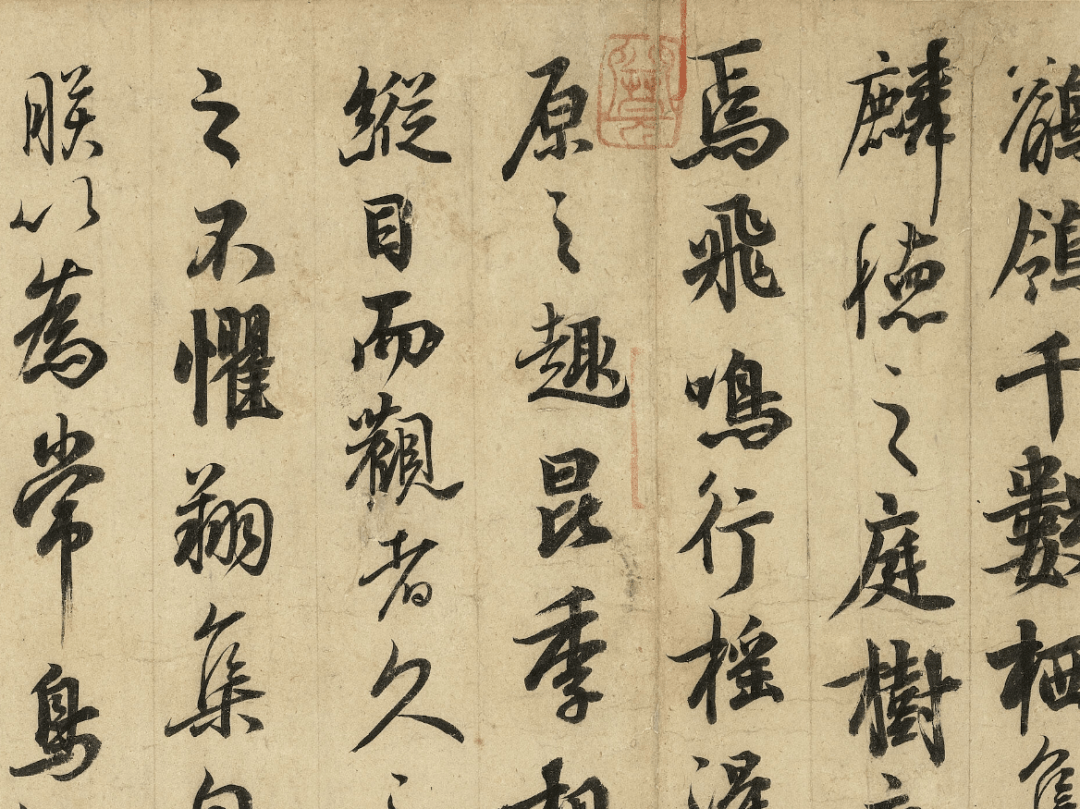 鶺鴒千數栖集
麟德之庭樹
焉飛鳴行搖得
原之趣昆季相
縱目而觀者久之
之不懼翔集自
朕以為常鳥